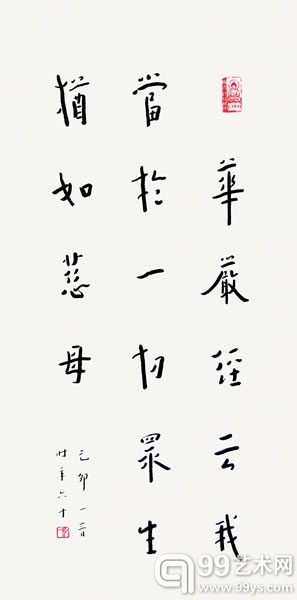 華嚴經云我
當於一切眾生
猶如慈母
己卯一音
時年六十
99艺术网
www.99ys.com